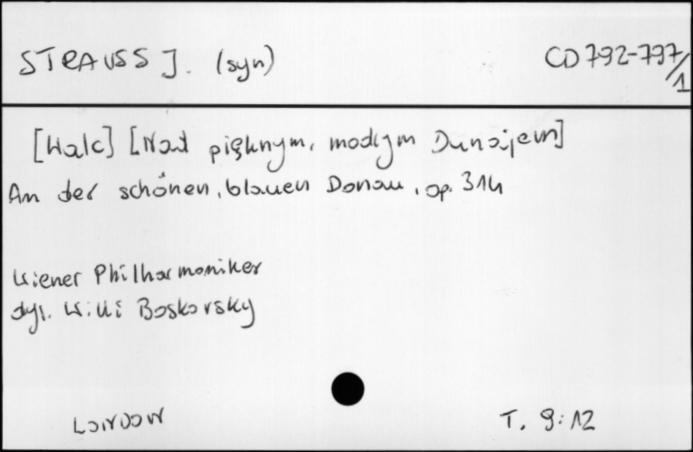 STRAUSS J. (syn) CD 792-797/1
[Walc] [Nad pięknym, modrym Dunajem]
An der schönen, blauen Donau, op. 314
Wiener Philharmoniker
dyr. Willi Boskovsky
LONDON T. 9:12